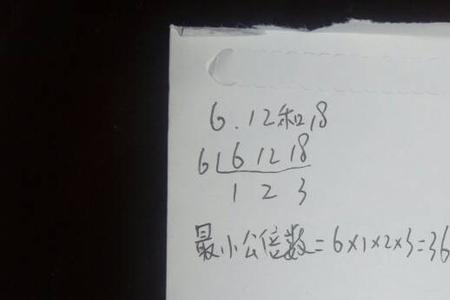 6.12和18
6 6 12 18
1 2 3
最小公倍数=6×1×2×3=36